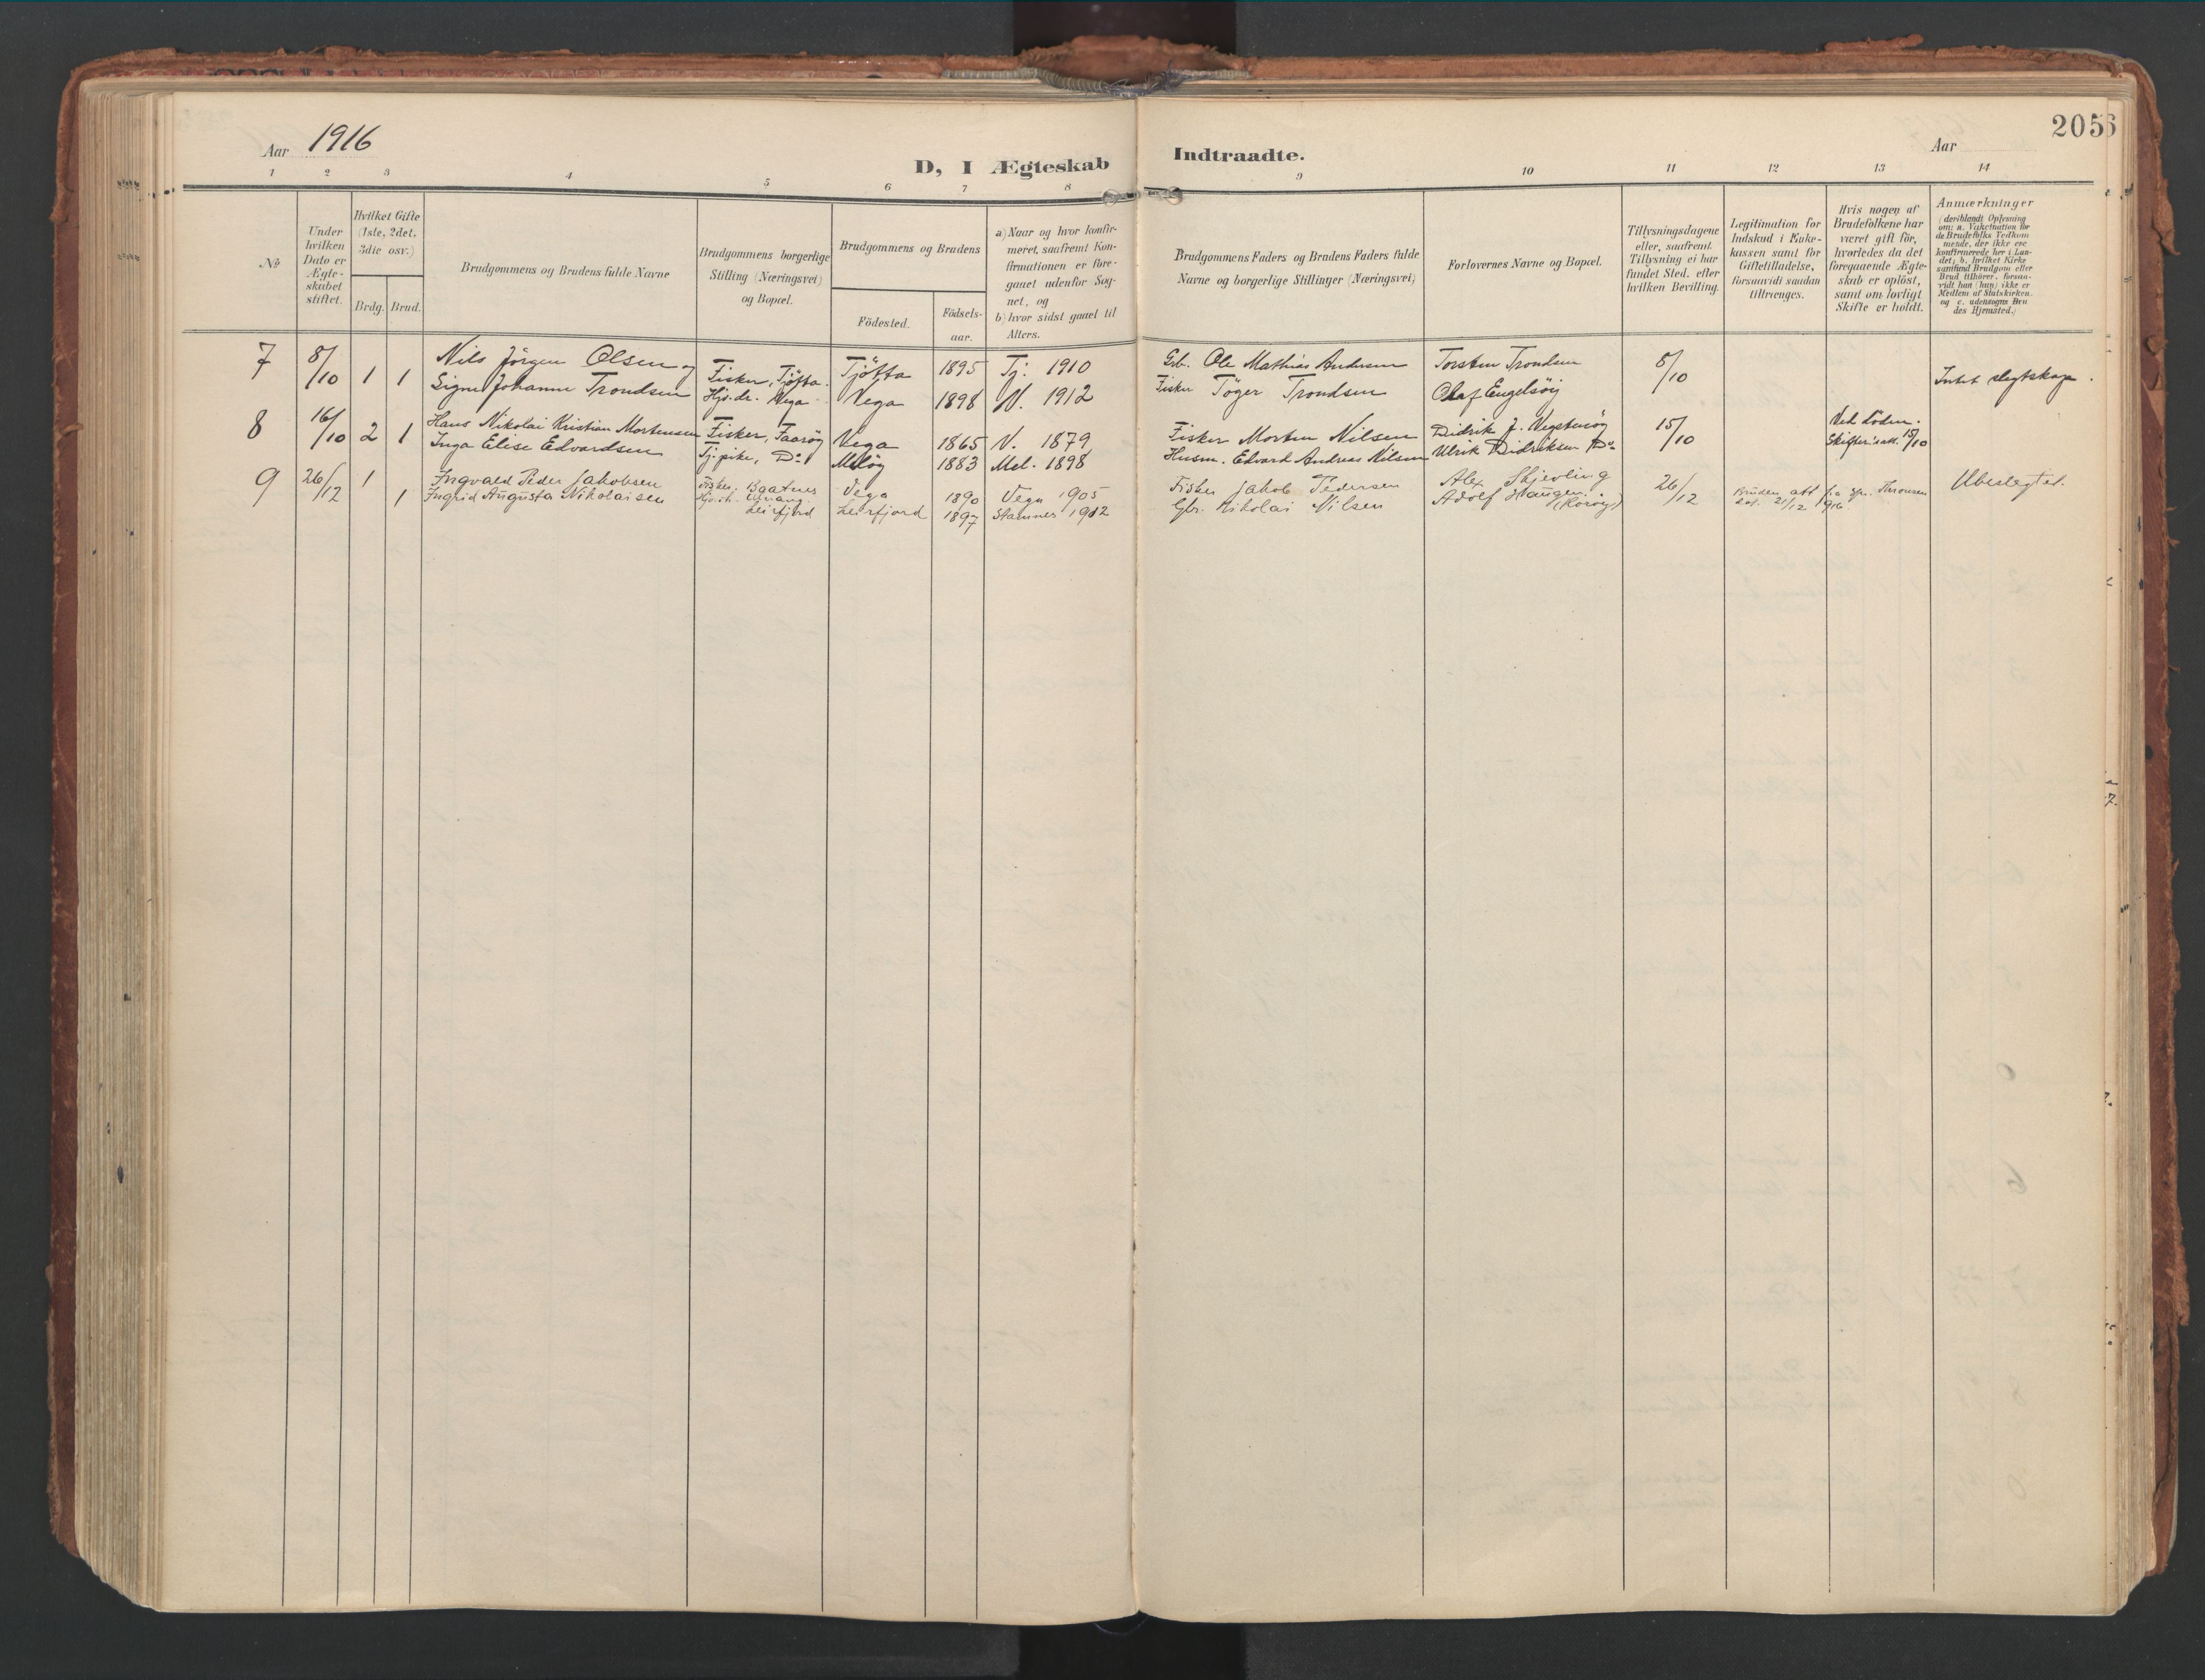 Aar 1916
D, I Ægteskab
Indtraadte.
Aar
205
1 2 3 4 5 6 7 8 9 10 11 12 13 14
№
Under
hvilken
Dato er
Ægte-
skabet
stiftet.
Hvilket Gifte
(1ste, 2det,
3die osv.)
Brdg. Brud.
Brudgommens og Brudens fulde Navne
Brudgommens borgerlige
Stilling (Næringsvei)
og Bopæl.
Brudgommens og Brudens
Födested.
Födsels-
aar.
a) Naar og hvor konfir-
meret, saafremt Kon-
firmationen er fore-
gaaet udenfor Sog-
net, og
b) hvor sidst gaaet til
Alters.
Brudgommens Faders og Brudens Faders fulde
Navne og borgerlige Stillinger (Næringsvei)
Forlovernes Navne og Bopæl.
Tillysningsdagene
eller, saafremt
Tillysning ei har
fundet Sted, efter
hvilken Bevilling.
Legitimation for
Indskud i Enke-
kassen samt for
Giftetilladelse,
forsaavidt saadan
tiltrænges.
Hvis nogen af
Brudefolkene har
været gift för,
hvorledes da det
foregaaende Ægte-
skab er oplöst,
samt om lovligt
Skifte er holdt.
Anmærkninger
(deriblandt Oplysning
om: a. Vakcination for
de Brudefolks Vedkom
mende, der ikke ere
konfirmerede her i Lan-
det; b. hvilket Kirke
samfund Brudgom eller
Brud tilhörer, forsaa-
vidt han (hun) ikke er
Medlem af Statskirken.
og c. udensogns Bru
des Hjemsted.)
7 8/10 1 1 Nils Jörgen Olsen og Fisker, Tjötta. Tjötta 1895 Tj. 1910 Grb. Ole Mathias Andersen Torsten Trondsen 8/10 Intet slegtskap.
Signe Johanne Trondsen Hjv. dr. Vega Vega 1898 V. 1912 Fisker Töger Trondsen Olaf Engelsöy
8 16/10 2 1 Hans Nikolai Kristian Mortensen Fisker, Faaröy Vega 1865 V. 1879 Fisker Morten Nilsen Didrik J. 15/10 Ved döden.
Inga Elise Edvardsen Tj.pike, Do Melöy 1883 Mel. 1898 Husm. Edvard Andreas Nilsen Ulrik Didriksen Do 15/10
9 26/12 1 Ingvald Peder Jakobsen Fisker. Vega 1890 Vega 1905 Fisker Jakob Pedersen Alex Skjevling 26/12 Bruden att. fra spr. Ubeslegtet.
1 Ingrid Augusta Nikolaisen Leirfjord Leirfjord 1897 Stamnes 1912 Gbr. Nikolai Nilsen Adolf Haugen. 21/12 916